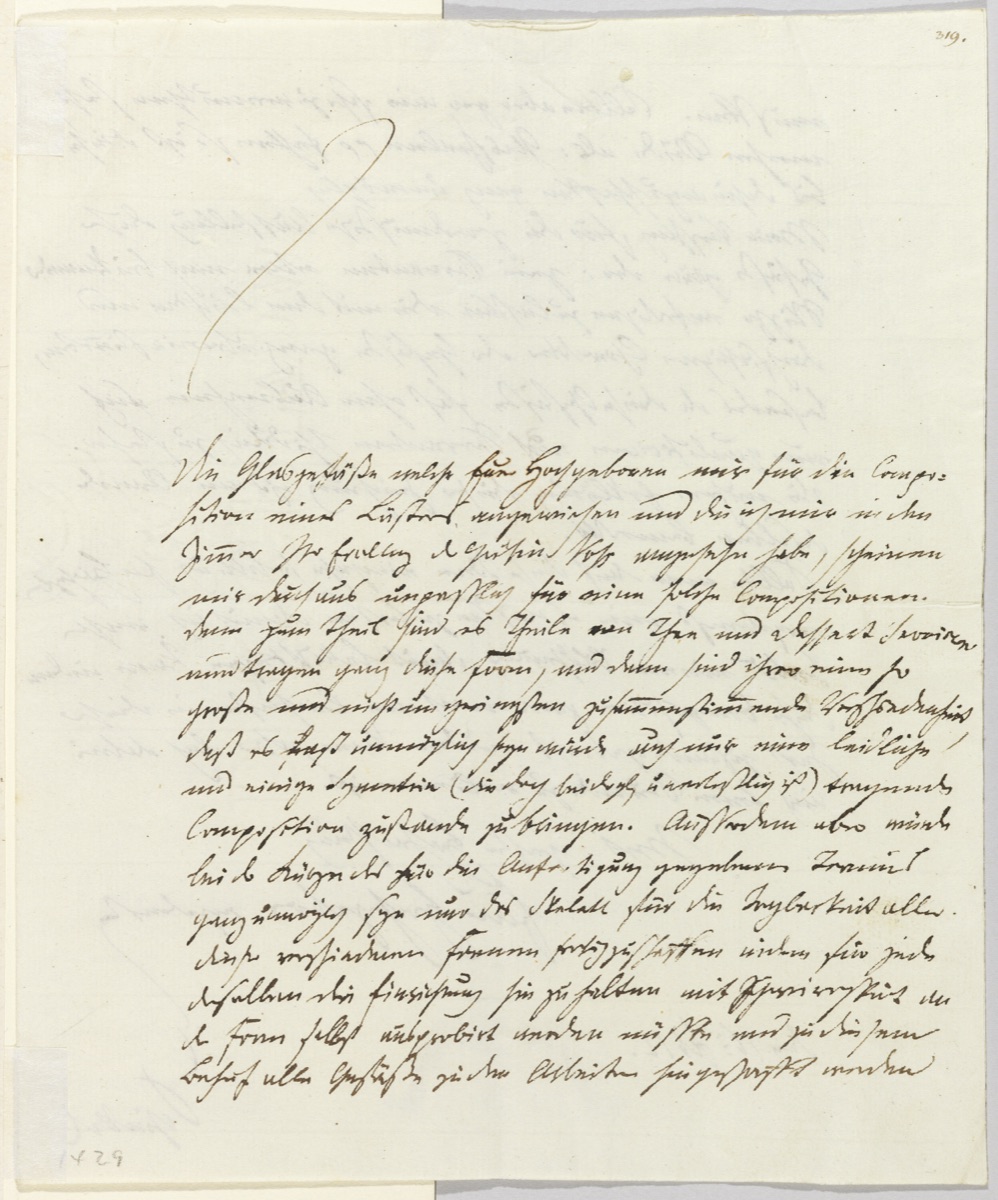 319.
Die Glasgefäße welche Euer Hochgeboren mir für die Compo-
sition eines Lüsters angewiesen und die ich mir in den
Zimmer Ihr Excellenz d Gräfin Voß angesehn habe, scheinen
mir durchaus unpasslich für eine solche Compositionen.
denn zum Theil sind es Theile von Thee und Dessert Servicen
und tragen ganz diese Form, und dann sind ihrer eine so
große und nicht im geringsten zusammenstimmende Verschiedenheit,
daß es fast unmöglich seyn würde auch nur eine leidliche
und einige Symetrie (die doch hiedurch unerlaßlich ist) tragende
Composition zustande zu bringen. Ausserdem aber würde
bei d Kürze des für die Anfertigung gegebenen Termins
ganz unmöglich seyn nur das Skelett für die Tragbarkeit aller
diese verschiedenen Formen fertig zu schaffen indem für jede
derselben die Einrichtung sie zu halten mit Schwierigkeit an
d Form selbst ausprobirt werden müsste und zu diesem
Behuf alle Gefäße zu den Arbeiten hingeschafft werden
1429